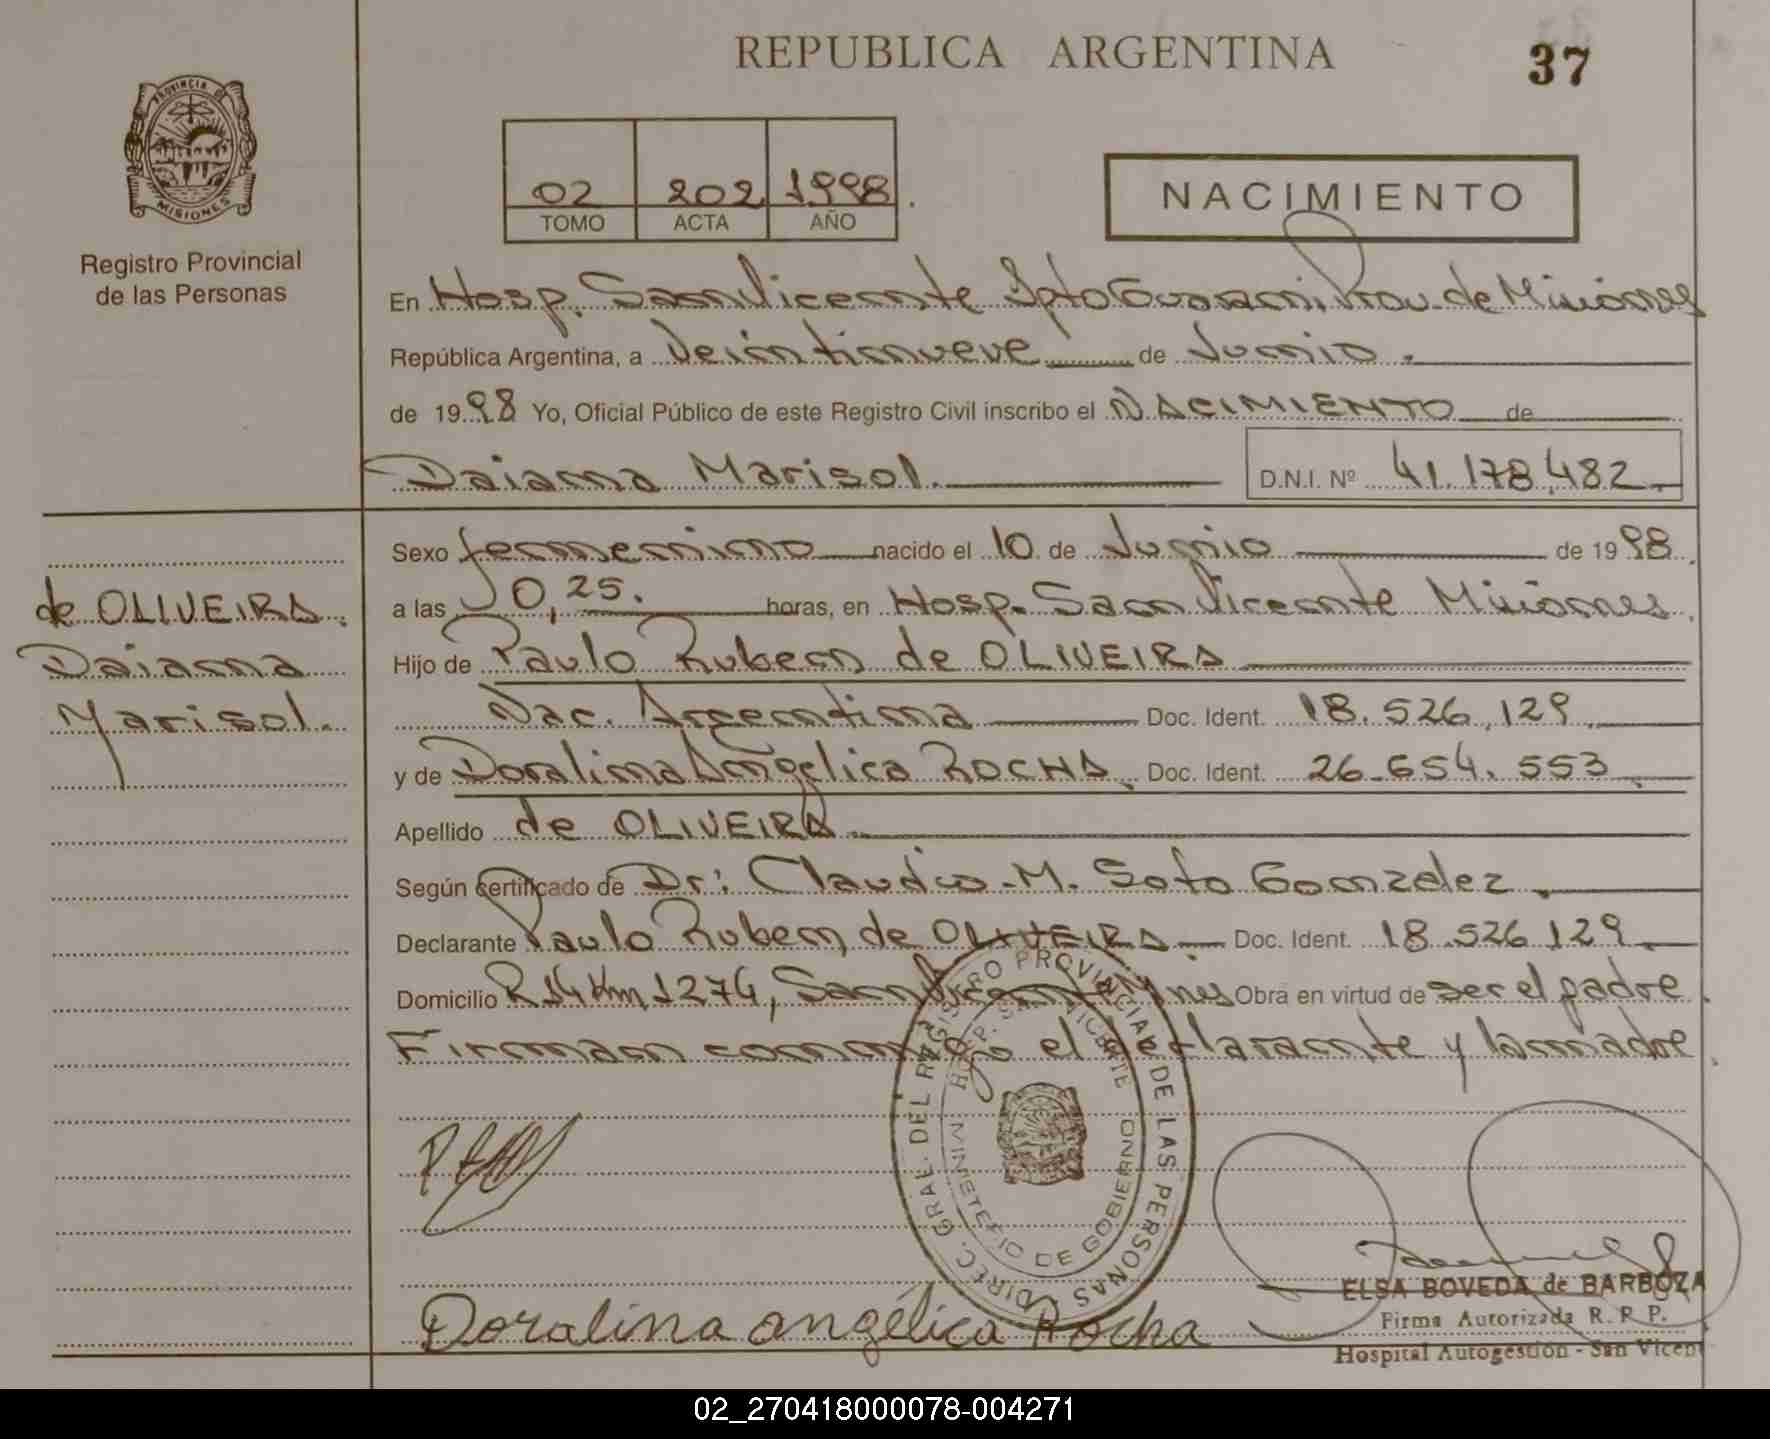 REPUBLICA ARGENTINA
37
PROVINCIA DE
MISIONES
Registro Provincial
de las Personas
02 202 1998.
TOMO ACTA AÑO
NACIMIENTO
En Hosp. San Vicente Dpto Guarani, Prov. de Misiones
República Argentina, a Veintinueve de Junio.
de 1998 Yo, Oficial Público de este Registro Civil inscribo el NACIMIENTO de
Daiana Marisol. D.N.I. Nº 41.178.482
de OLIVEIRA.
Daiana
Marisol.
Sexo femenino nacido el 10 de Junio de 1998.
a las 0,25. horas, en Hosp. San Vicente Misiones.
Hijo de Paulo Ruben de OLIVEIRA
Nac. Argentina Doc. Ident. 18.526.129.
y de Doralina Angelica ROCHA. Doc. Ident. 26.654.553.
Apellido de OLIVEIRA.
Según certificado de Dr: Claudio M. Soto Gonzalez.
Declarante Paulo Ruben de OLIVEIRA. Doc. Ident. 18.526.129.
Domicilio R 14 Km 1274, San Vicente Mnes Obra en virtud de ser el padre.
Firman conmigo el declarante y la madre.
DIREC. GRAL. DEL REGISTRO PROVINCIAL DE LAS PERSONAS
HOSP. SAN VICENTE
MINISTERIO DE GOBIERNO
Doralina angélica Rocha
ELSA BOVEDA de BARBOZA
Firma Autorizada R. R. P.
Hospital Autogestion - San Vicen
02_270418000078-004271